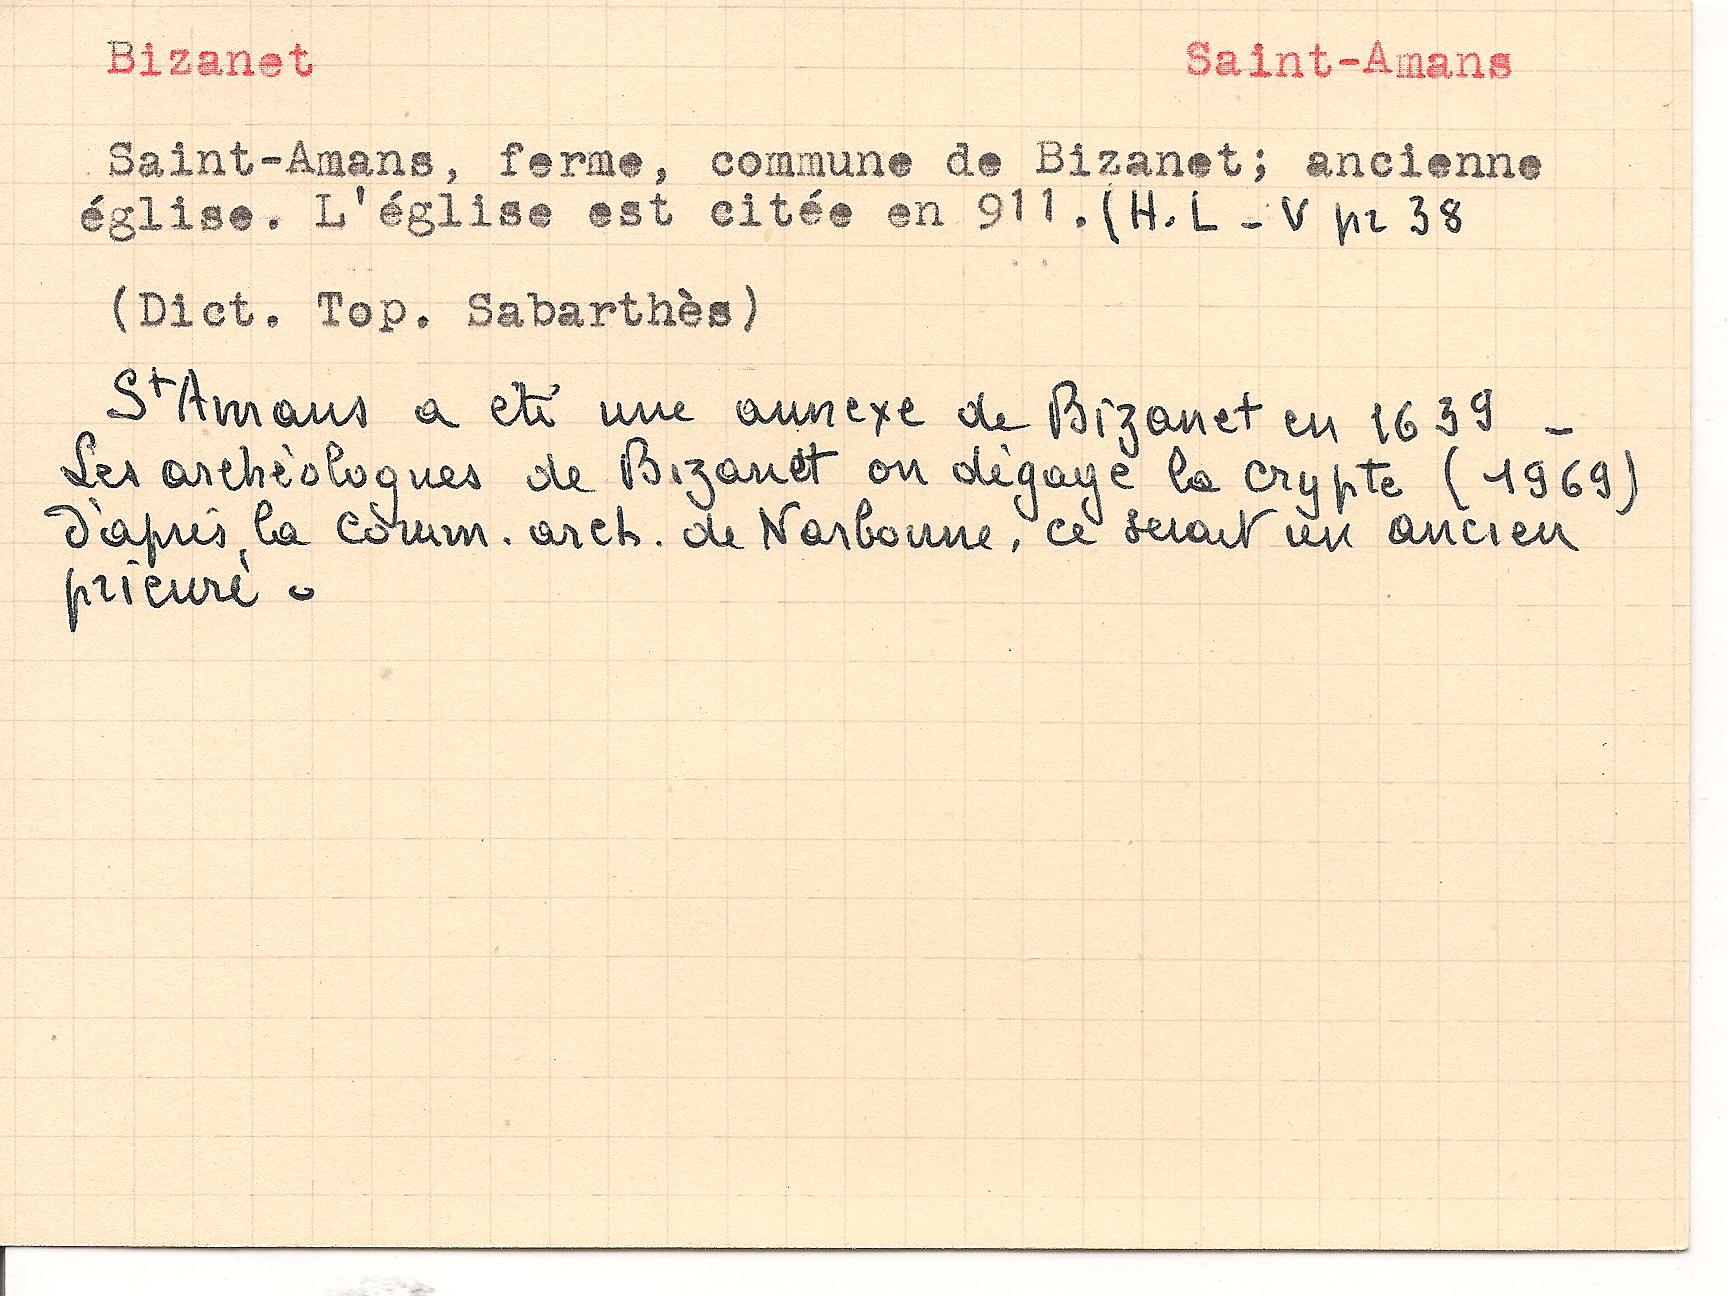 Bizanet Saint-Amans
Saint-Amans, ferme, commune de Bizanet; ancienne
église. L'église est citée en 911.(H.L - V pr 38
(Dict. Top. Sabarthès)
St Amans a été une annexe de Bizanet en 1639 -
Les archéologues de Bizanet on dégagé la crypte (1969)
D'après la Comm. arch. de Narbonne, ce serait un ancien
prieuré.